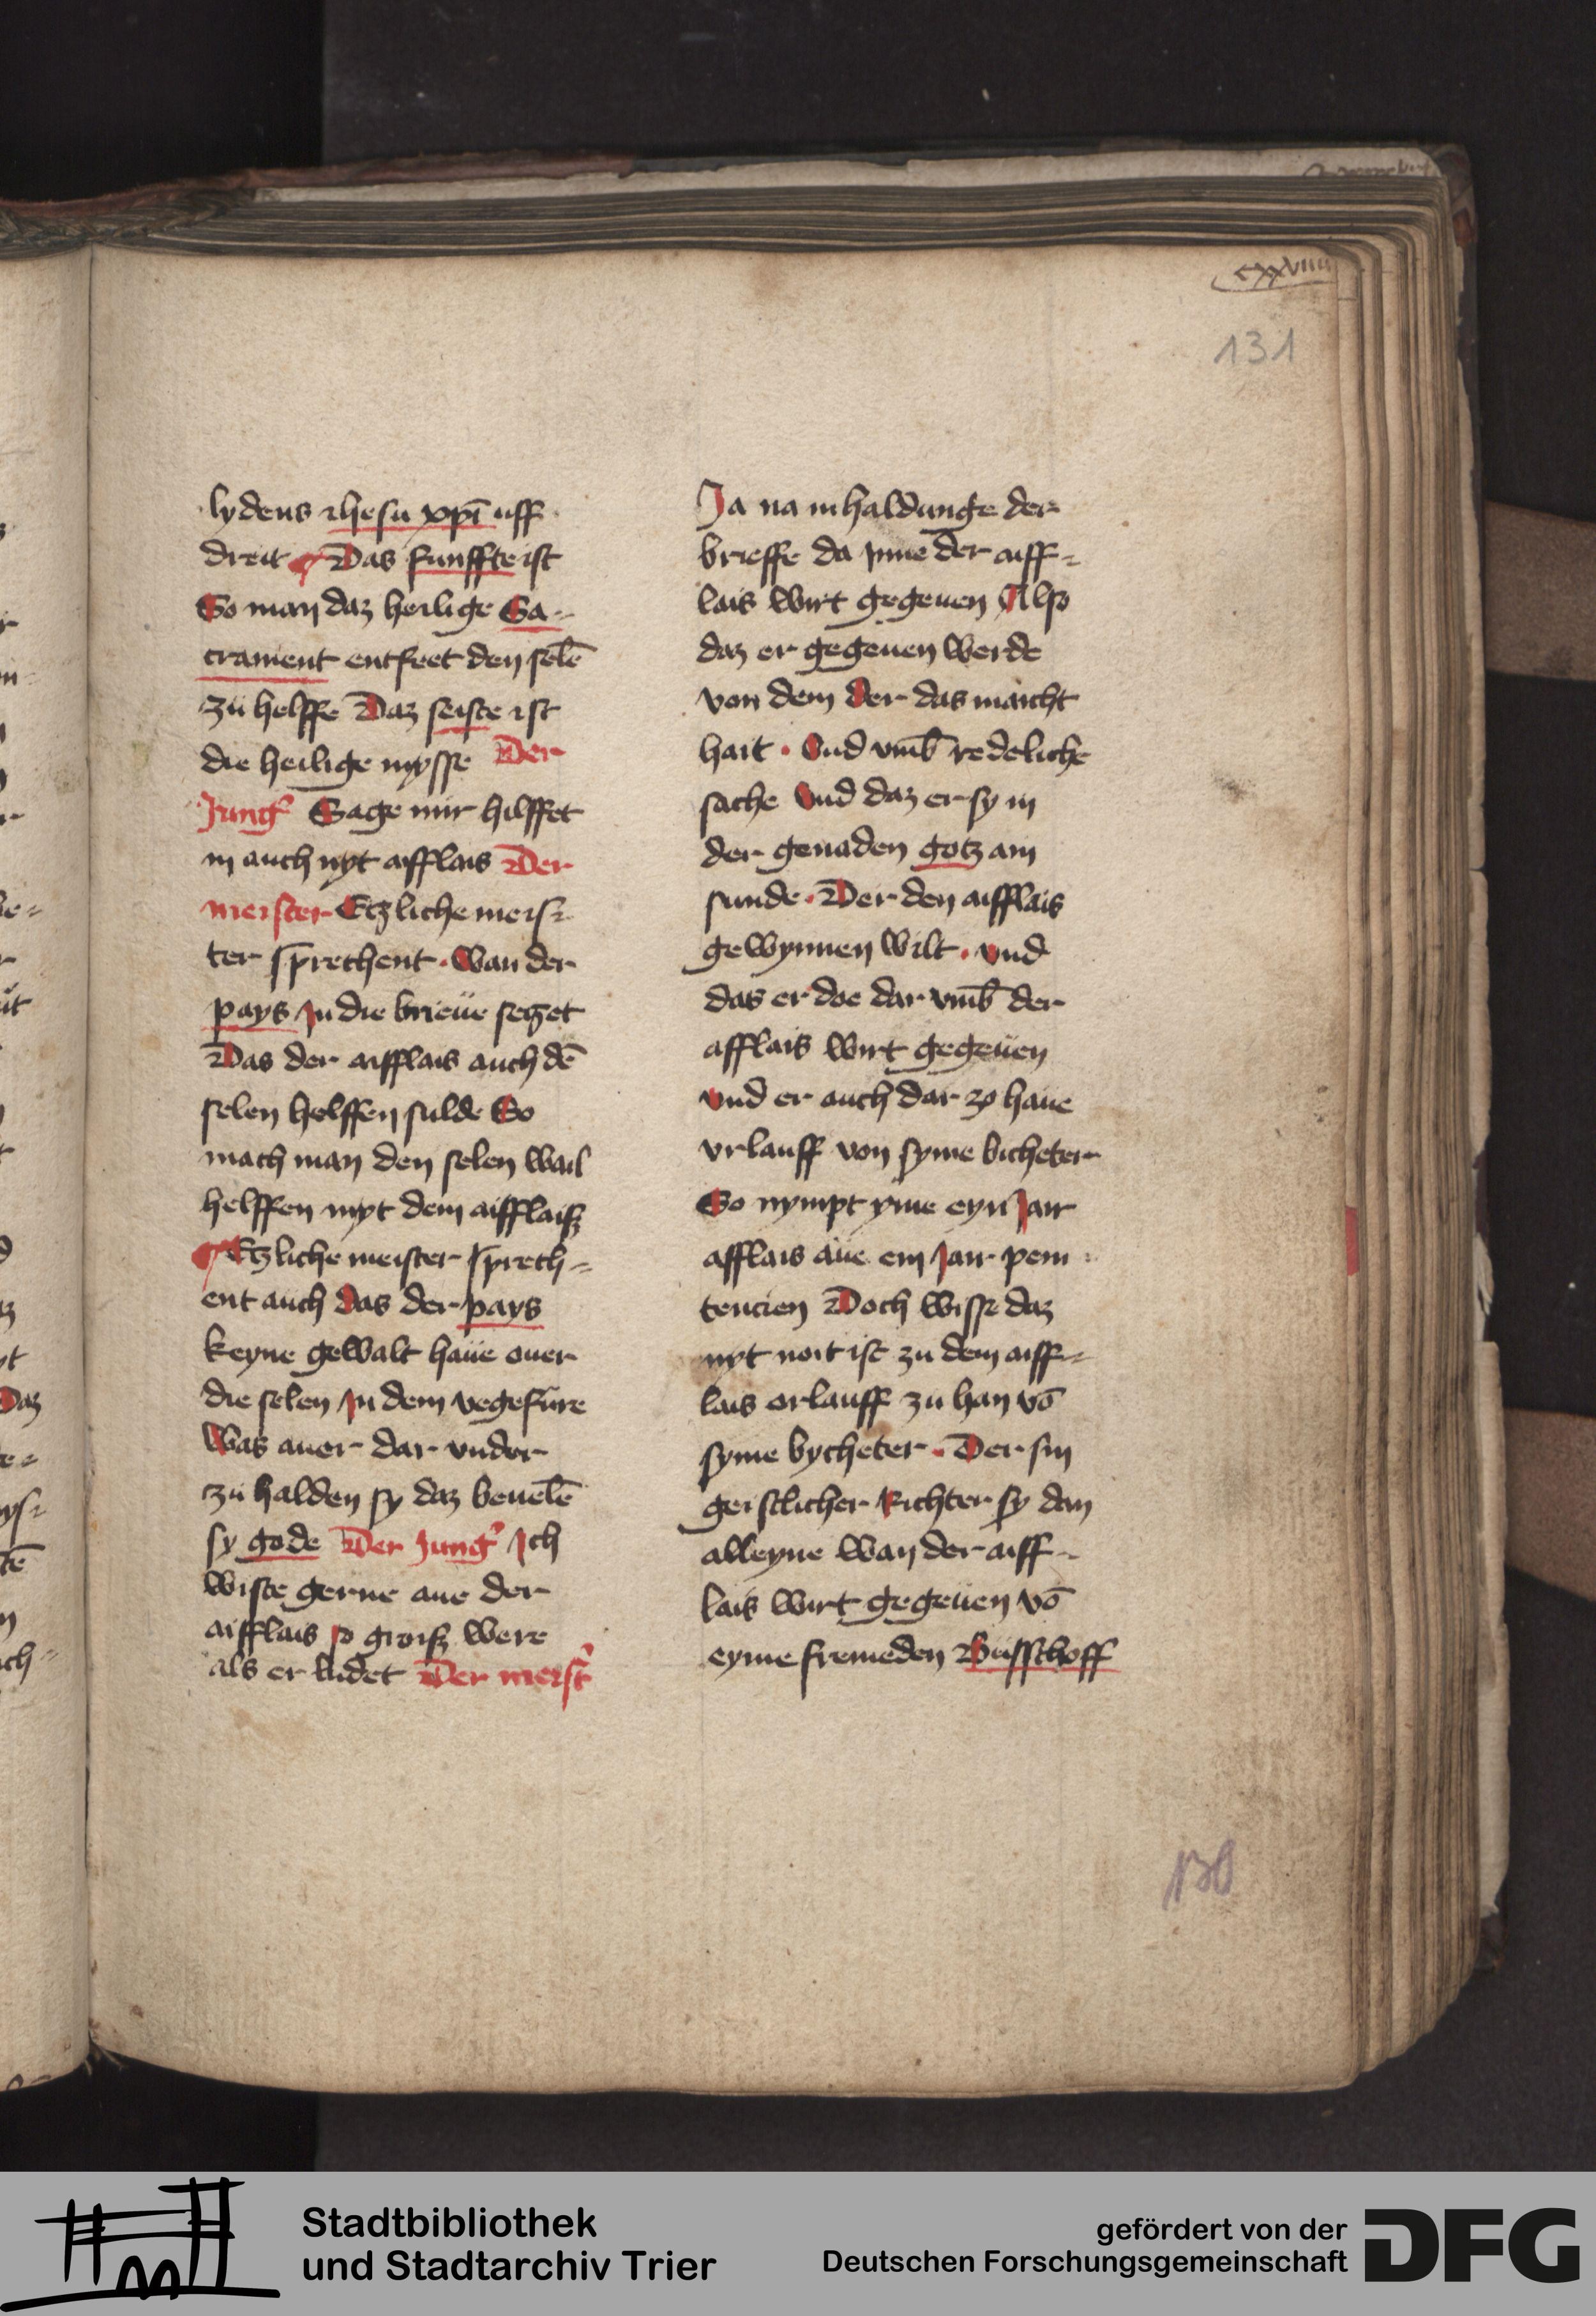 cxxviiij
131
lydens ihesu xpī uff
dreit Das funffte ist
So man daz heilige Sa-
crament entfeet den selē
zü helffe Daz seiste ist
die heilige mysse Der
Jung' Sage mir hilffet
in auch nyt aifflais Der
meister Etzliche meis-
ter sprechent. Wan der
pays In die brieüe setzet
Das der aifflais auch dē
selen helffen sulde So
mach man den selen wail
helffen myt dem aifflaisz
Etzliche meister sprech-
ent auch Das der pays
keyne gewalt haüe ouer
die selen In dem vegefüre
Was auer dar vnder
zü halden sy daz beuelē
sy gode Der Jung' Ich
wiste gerne aue der
aifflais so groisz were
als er ludet Der meist'
Ja na inhaldunge der
brieffe da Inne der aiff-
lais wirt gegeuen Also
daz er gegeuen werde
von dem der das maicht
hait. Vnd vmb redeliche
sache Vnd daz er sy in
der genaden gotz ain
sunde. Der den aifflais
gewynnen wilt. vnd
das er doe dar vmb der
afflais wirt gegeüen
vnd er auch dar zo haue
vrlauff von syme bicheter
So nympt yme eyn Jair
afflais aüe ein Jair peni
tencien Doch wisse daz
nyt noit ist zu dem aiff-
lais orlauff zü han vō
syme bycheter. Der sin
geistlicher Richter sy dan
alleyne wan der aiff-
lais wirt gegeüen vō
eyme fremeden Büsschoff
130
Stadtbibliothek
und Stadtarchiv Trier
gefördert von der
Deutschen Forschungsgemeinschaft
DFG